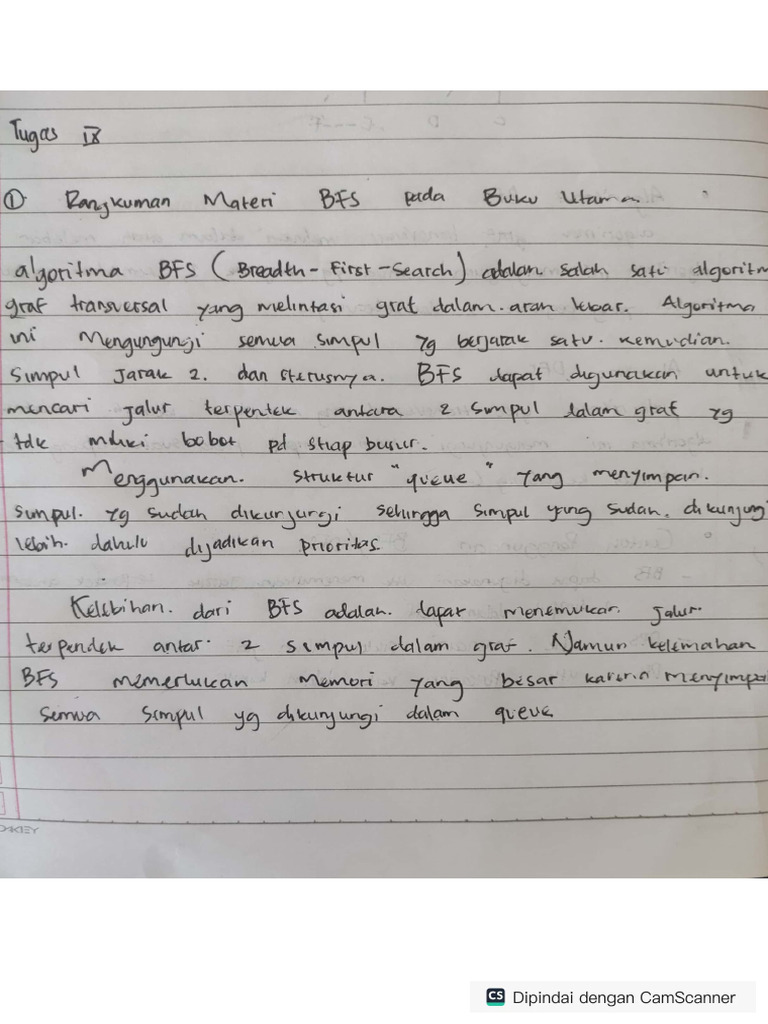 Tugas IX
① Rangkuman Materi BFS pada Buku Utama.
algoritma BFS (Breadth-First-Search) adalah salah satu algoritm
graf transversal yang melintasi graf dalam arah lebar. Algoritma
ini Mengungunji semua simpul yg berjarak satu. kemudian.
Simpul Jarak 2. dan sterusnya. BFS dapat digunakan untuk
mencari jalur terpentek antara 2 simpul dalam graf yg
tdk miliki bobot pd stiap busur.
Menggunakan. struktur "queue" yang menyimpan.
simpul. yg sudah dikunjungi sehingga simpul yang sudah. dikunjungi
lebih. dahulu dijadikan prioritas.
Kelebihan. dari BFS adalah. dapat menemukan. jalur.
terpendek antar. 2 simpul dalam graf. Namun kelemahan
BFS memerlukan Memori yang besar karena menyimpa
semua simpul yg dikunjungi dalam queue
OAKLEY
CS Dipindai dengan CamScanner